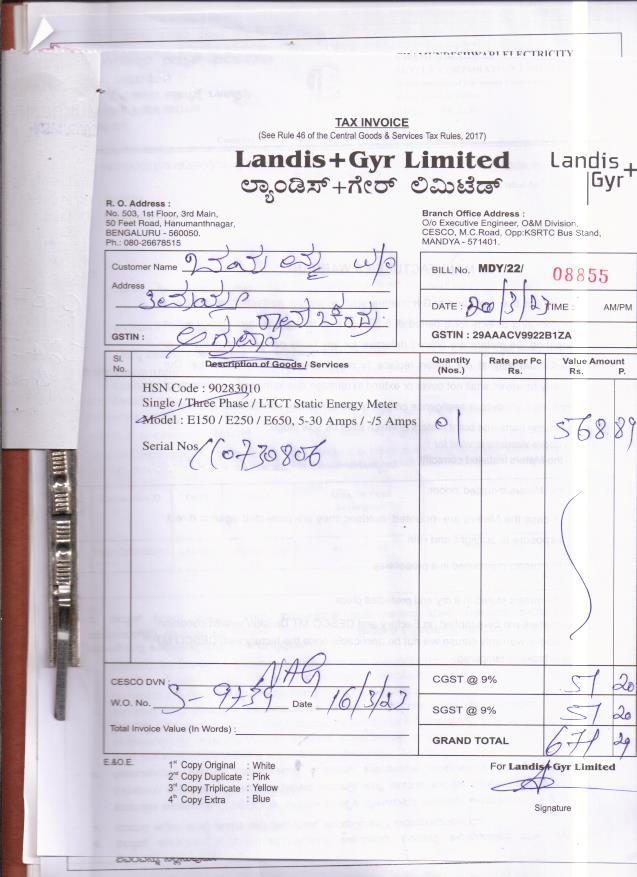 TAX INVOICE
(See Rule 46 of the Central Goods & Services Tax Rules, 2017)
Landis+Gyr Limited
ಲ್ಯಾಂಡಿಸ್+ಗೇರ್ ಲಿಮಿಟೆಡ್
Landis
Gyr+
R. O. Address :
No. 503, 1st Floor, 3rd Main,
50 Feet Road, Hanumanthnagar,
BENGALURU - 560050.
Ph.: 080-26678515
Branch Office Address :
O/o Executive Engineer, O&M Division,
CESCO, M.C.Road, Opp:KSRTC Bus Stand,
MANDYA - 571401.
Customer Name
Address
GSTIN :
BILL No. MDY/22/ 08855
DATE : 20/3/23 TIME : AM/PM
GSTIN : 29AAACV9922B1ZA
Sl. No. Description of Goods / Services Quantity (Nos.) Rate per Pc Rs. Value Amount Rs. P.
HSN Code : 90283010
Single / Three Phase / LTCT Static Energy Meter
Model : E150 / E250 / E650, 5-30 Amps / -/5 Amps 01 568 89
Serial Nos
CESCO DVN : NAG
W.O. No. S-9734 Date 16/3/23
Total Invoice Value (In Words) :
CGST @ 9% 51 20
SGST @ 9% 51 20
GRAND TOTAL 671 29
E.&O.E.
1st Copy Original : White
2nd Copy Duplicate : Pink
3rd Copy Triplicate : Yellow
4th Copy Extra : Blue
For Landis+Gyr Limited
Signature